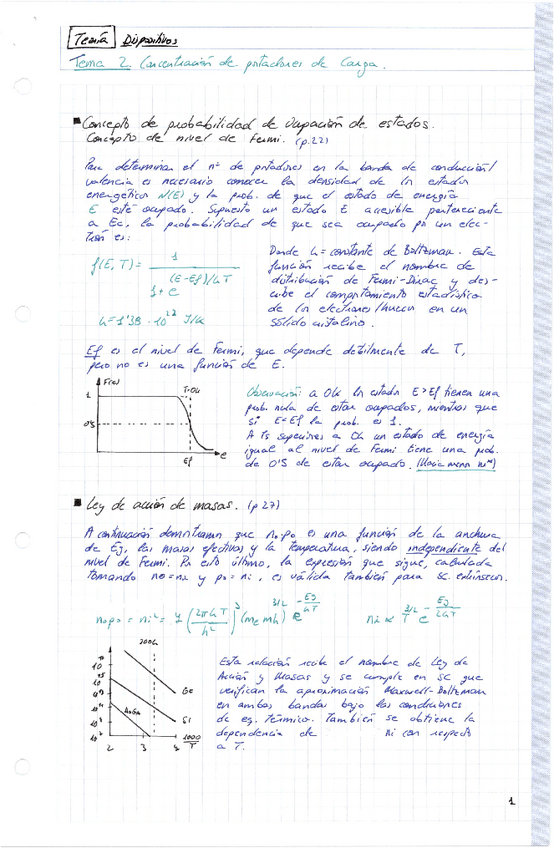 Teoría Dispositivos
Tema 2. Concentración de portadores de Carga.
■ Concepto de probabilidad de ocupación de estados.
Concepto de nivel de Fermi. (p.22)
Para determinar el nº de portadores en la banda de conducción/
valencia es necesario conocer la densidad de los estados
energéticos N(E) y la prob. de que el estado de energía
E esté ocupado. Supuesto un estado E accesible perteneciente
a Ec, la probabilidad de que sea ocupado por un elec-
trón es:
f(E,T) = 1 / (1 + e^((E-Ef)/kT))
k = 1'38 · 10
J/k
Donde k = constante de Boltzman. Esta
función recibe el nombre de
distribución de Fermi-Dirac y des-
cribe el comportamiento estadístico
de los electrones/huecos en un
sólido cristalino.
Ef es el nivel de Fermi, que depende débilmente de T,
pero no es una función de E.
F(E)
1
0'5
T=0k
Ef
E
Observación: a 0k los estados E>Ef tienen una
prob. nula de estar ocupados, mientras que
si E<Ef la prob. es 1.
A Ts superiores a 0k un estado de energía
igual al nivel de Fermi tiene una prob.
de 0'5 de estar ocupado.
■ Ley de acción de masas. (p 27)
A continuación demostramos que n₀p₀ es una función de la anchura
de Eg, las masas efectivas y la temperatura, siendo independiente del
nivel de Fermi. Por esto último, la expresión que sigue, calculada
tomando n₀=ni y p₀=ni, es válida también para SC extrínsecos.
n₀p₀ = ni² = 4 (2πkT/h²)³ (me mh)^(3/2) e^(-Eg/kT)
ni ∝ T^(3/2) e^(-Eg/2kT)
300k
Ge
Si
AsGa
2
3
4
1000/T
Esta relación recibe el nombre de Ley de
Acción y Masas y se cumple en SC que
verifican la aproximación Maxwell-Boltzman
en ambas bandas bajo las condiciones
de eq. térmico. También se obtiene la
dependencia de ni con respecto
a T.
1